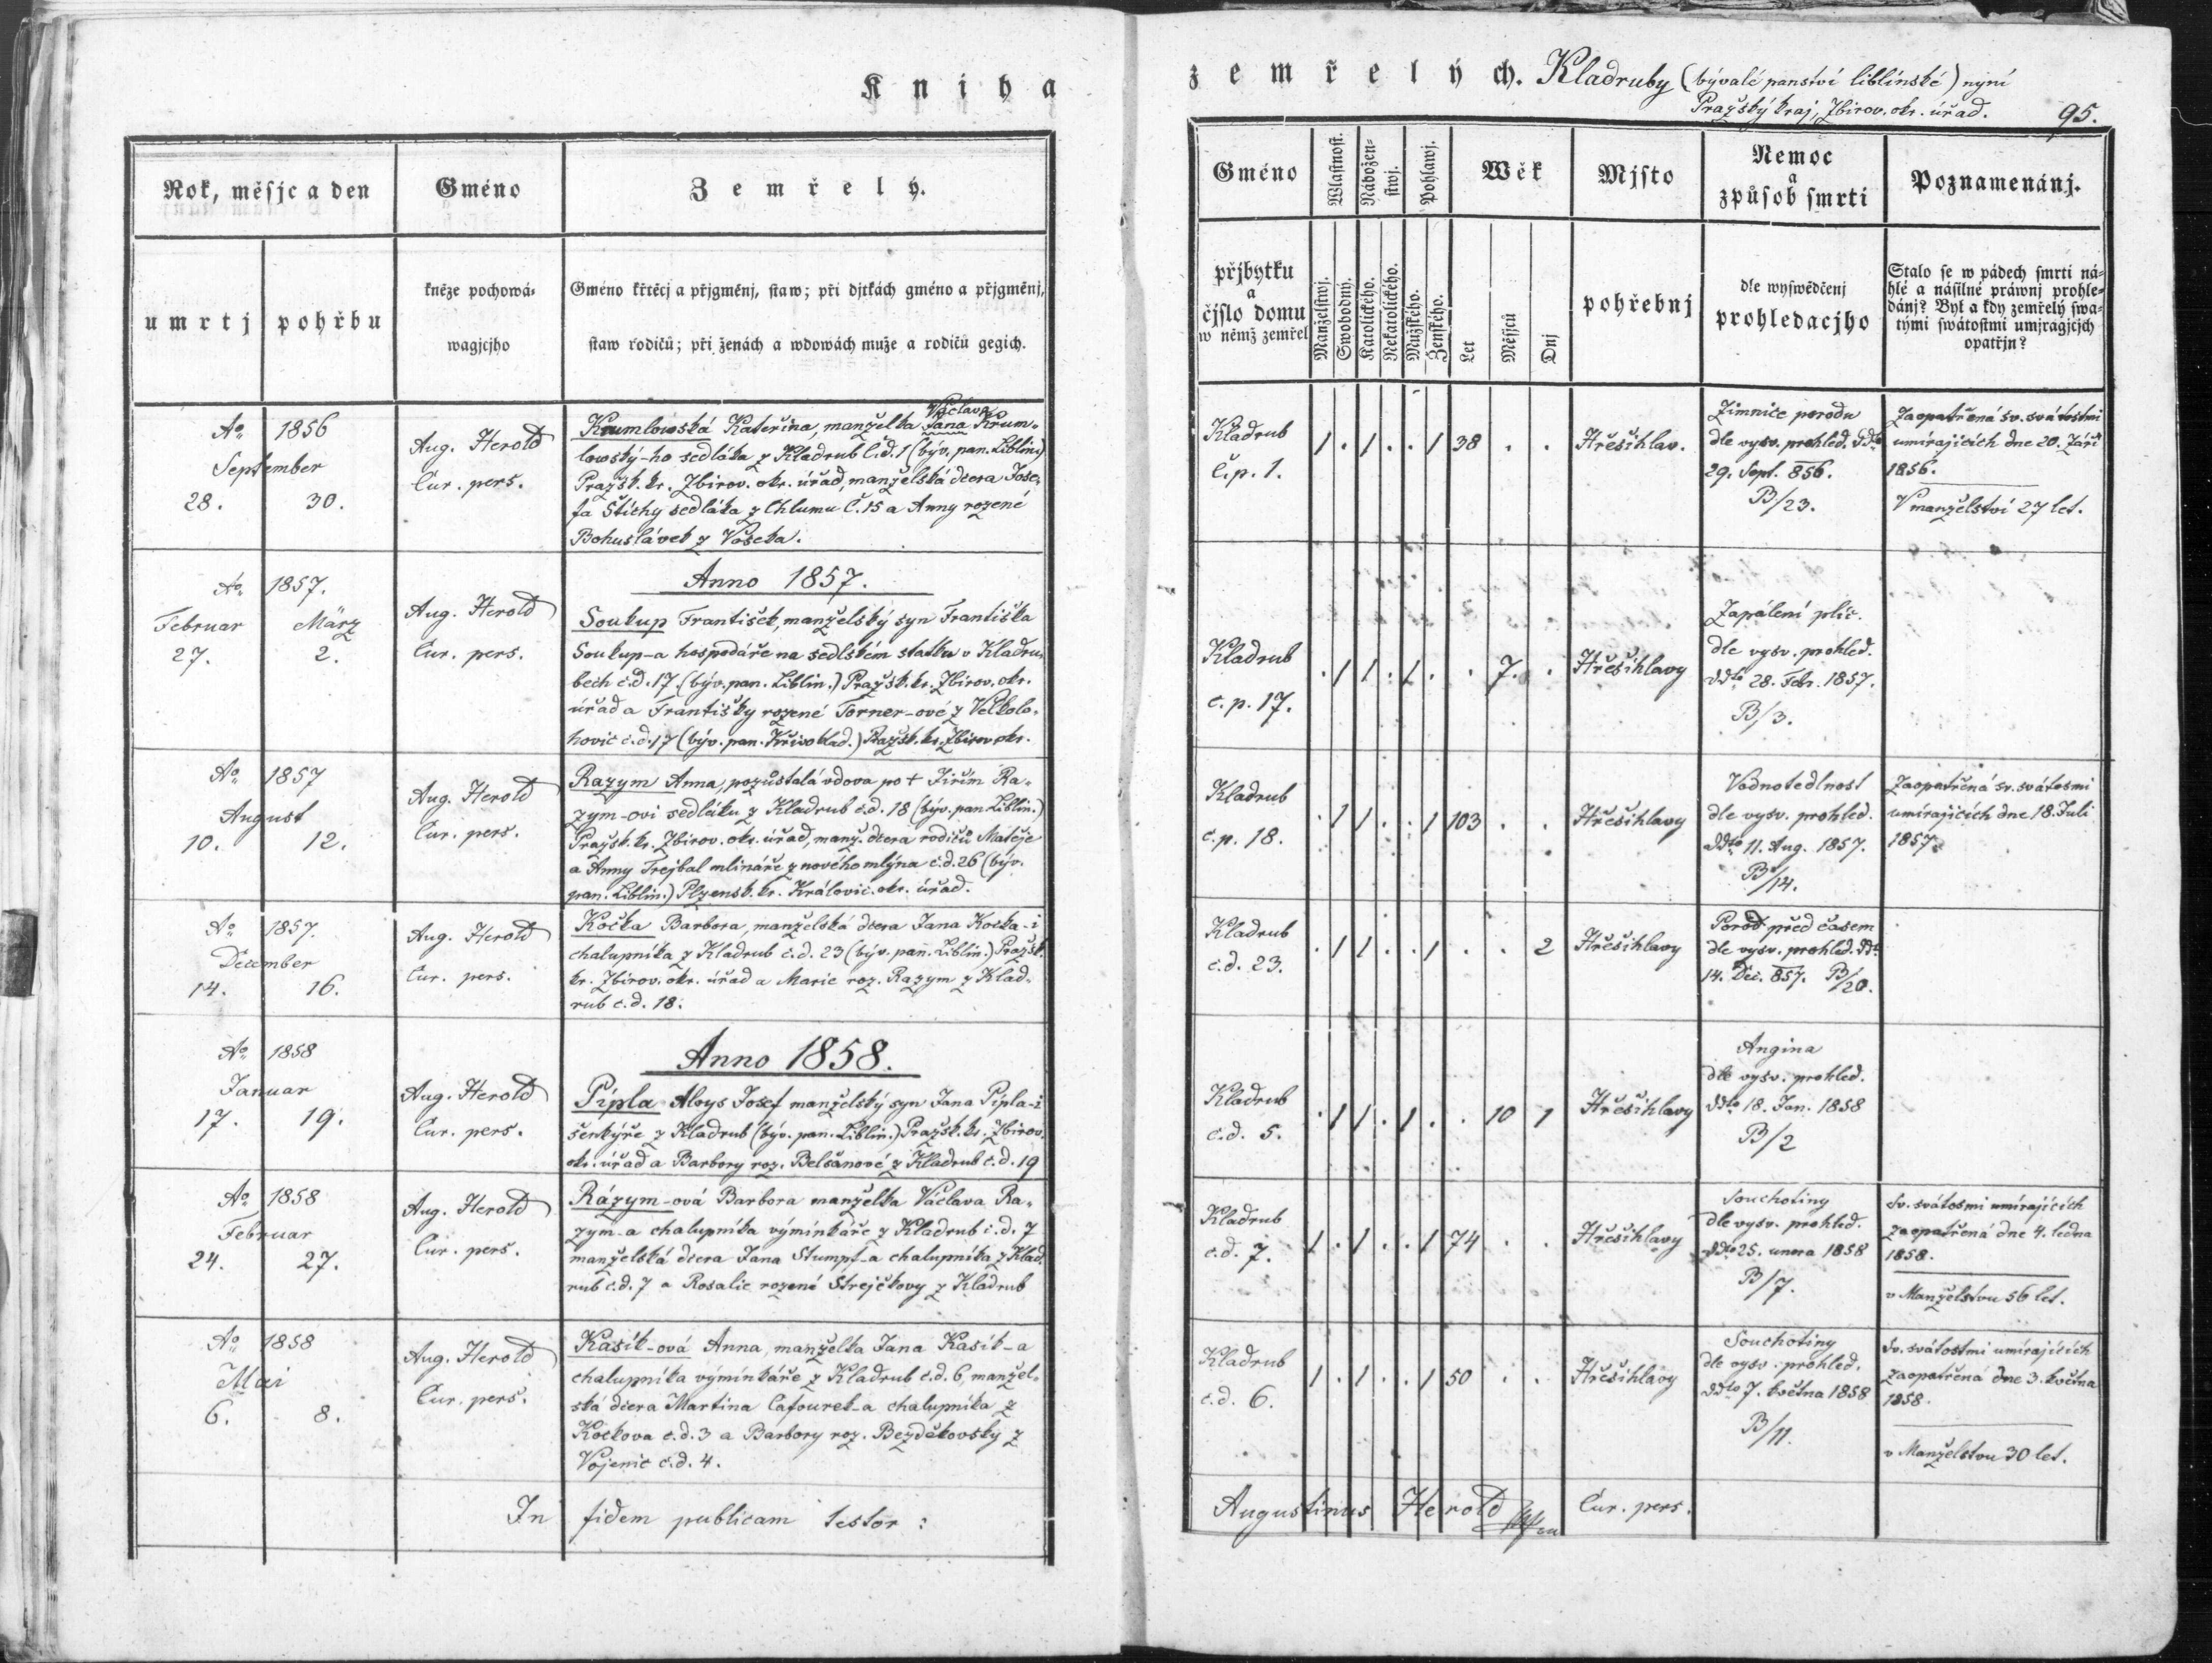 Kniha zemřelých. Kladruby (bývalé panství liblínské) nyní
Pražský kraj, Zbirov. okr. úřad. 95.
Rok, měsjc a den
Gméno
Zemřelý.
umrtj
pohřbu
kněze pochowá-
wagjcjho
Gméno křtěcj a přjgměnj, staw; při djtkách gméno a přjgměnj,
staw rodičů; při ženách a wdowách muže a rodičů gegich.
Gméno
Wlastnost.
Nábožen-
stwj.
Pohlawj.
Wěk
Mjsto
Nemoc
a
způsob smrti
Poznamenánj.
přjbytku
a
čjslo domu
w němž zemřel
Manželstwj.
Swobodný.
Katolického.
Nekatolického.
Mužského.
Ženského.
Let
Měsjců
Dnj
pohřebnj
dle wyswědčenj
prohledacjho
Stalo se w pádech smrti ná-
hlé a násilné práwnj prohle-
dánj? Byl a kdy zemřelý swa-
tými swátostmi umjragjcjch
opatřjn?
Ao 1856
September
28. 30.
Aug. Herold
Cur. pers.
Václava
Krumlowská Kateřina, manželka Jana Krum-
lowský-ho sedláka z Kladrub č.d. 1 (býv. pan. Liblín.)
Pražsk. kr. Zbirov. okr. úřad, manželská dcera Jose-
fa Štichy sedláka z Chlumu č. 15 a Anny rozené
Bohuslávek z Voseka.
Kladrub
č.p. 1.
1 . 1 . . 1 38 . .
Hřešihlav.
Zimnice porodu
dle vysv. prohled. ddto
29. Sept. 856.
B/23.
Zaopatřená sv. svátostmi
umírajících dne 20. Září
1856.
V manželství 27 let.
Anno 1857.
Ao 1857.
Februar März
27. 2.
Aug. Herold
Cur. pers.
Soukup František, manželský syn Františka
Soukup-a hospodáře na sedlském statku v Kladru-
bech č.d. 17 (býv. pan. Liblin.) Pražsk. kr. Zbirov. okr.
úřad a Františky rozené Torner-ové z Velkolo-
hovic č.d. 17 (býv. pan. Křivoklad.) Pražsk. kr. Zbirov okr.
Kladrub
č.p. 17.
. 1 1 . 1 . . 7. .
Hřešihlavy
Zapálení plic.
dle vysv. prohled.
ddto 28. Febr. 1857.
B/3.
Ao 1857
August
10. 12.
Aug. Herold
Cur. pers.
Razym Anna, pozůstalá vdova po + Jiřím Ra-
zym-ovi sedláku z Kladrub č.d. 18 (býv. pan Liblin.)
Pražsk. kr. Zbirov. okr. úřad, manž. dcera rodičů Matěje
a Anny Trejbal mlináře z nového mlýna č.d. 26 (býv.
pan. Liblin.) Plzensk. kr. Královic. okr. úřad.
Kladrub
č.p. 18.
. 1 1 . . 1 103 . .
Hřešihlavy
Vodnotedlnost
dle vysv. prohled.
ddto 11. Aug. 1857.
B/14.
Zaopatřená sv. svátosmi
umírajících dne 18. Juli
1857.
Ao 1857.
December
14. 16.
Aug. Herold
Cur. pers.
Kočka Barbora, manželská dcera Jana Kočka-i
chalupníka z Kladrub č.d. 23 (býv. pan. Liblin.) Pražsk.
kr. Zbirov. okr. úřad a Marie roz. Razym z Klad-
rub č.d. 18.
Kladrub
č.d. 23.
. 1 1 . . 1 . . 2
Hřešihlavy
Porod před časem
dle vysv. prohled. ddto
14. Dec. 857. B/20.
Anno 1858.
Ao 1858
Januar
17. 19.
Aug. Herold
Cur. pers.
Pípla Aloys Josef manželský syn Jana Pípla-i
šenkýře z Kladrub (býv. pan. Liblin.) Pražsk. kr. Zbirov.
okr. úřad a Barbory roz. Belšanové z Kladrub č.d. 19
Kladrub
č.d. 5.
. 1 1 . 1 . . 10 1
Hřešihlavy
Angina
dle vysv. prohled.
ddto 18. Jan. 1858
B/2
Ao 1858
Februar
24. 27.
Aug. Herold
Cur. pers.
Rázym-ová Barbora manželka Václava Ra-
zym-a chalupníka výminkáře z Kladrub č.d. 7
manželská dcera Jana Stumpf-a chalupníka z Klad
rub č.d. 7 a Rosalie rozené Strejčkovy z Kladrub
Kladrub
č.d. 7.
1 . 1 . . 1 74 . .
Hřešihlavy
Souchotiny
dle vysv. prohled.
ddto 25. unora 1858
B/7.
Sv. svátosmi umírajících
zaopatřená dne 4. ledna
1858.
v Manželstvu 56 let.
Ao 1858
Mai
6. 8.
Aug. Herold
Cur. pers.
Kasík-ová Anna, manželka Jana Kasík-a
chalupníka výminkáře z Kladrub č.d. 6, manžel-
ská dcera Martina Cafourek-a chalupníka z
Kočkova č.d. 3 a Barbory roz. Bezděkovsky z
Vojenic č.d. 4.
Kladrub
č.d. 6.
1 . 1 . . 1 50 . .
Hřešihlavy
Souchotiny
dle vysv. prohled.
ddto 7. května 1858
B/11.
Sv. svátostmi umírajících
zaopatřená dne 3. května
1858.
v Manželstvu 30 let.
In fidem publicam testor:
Augustinus Herold Cur. pers.